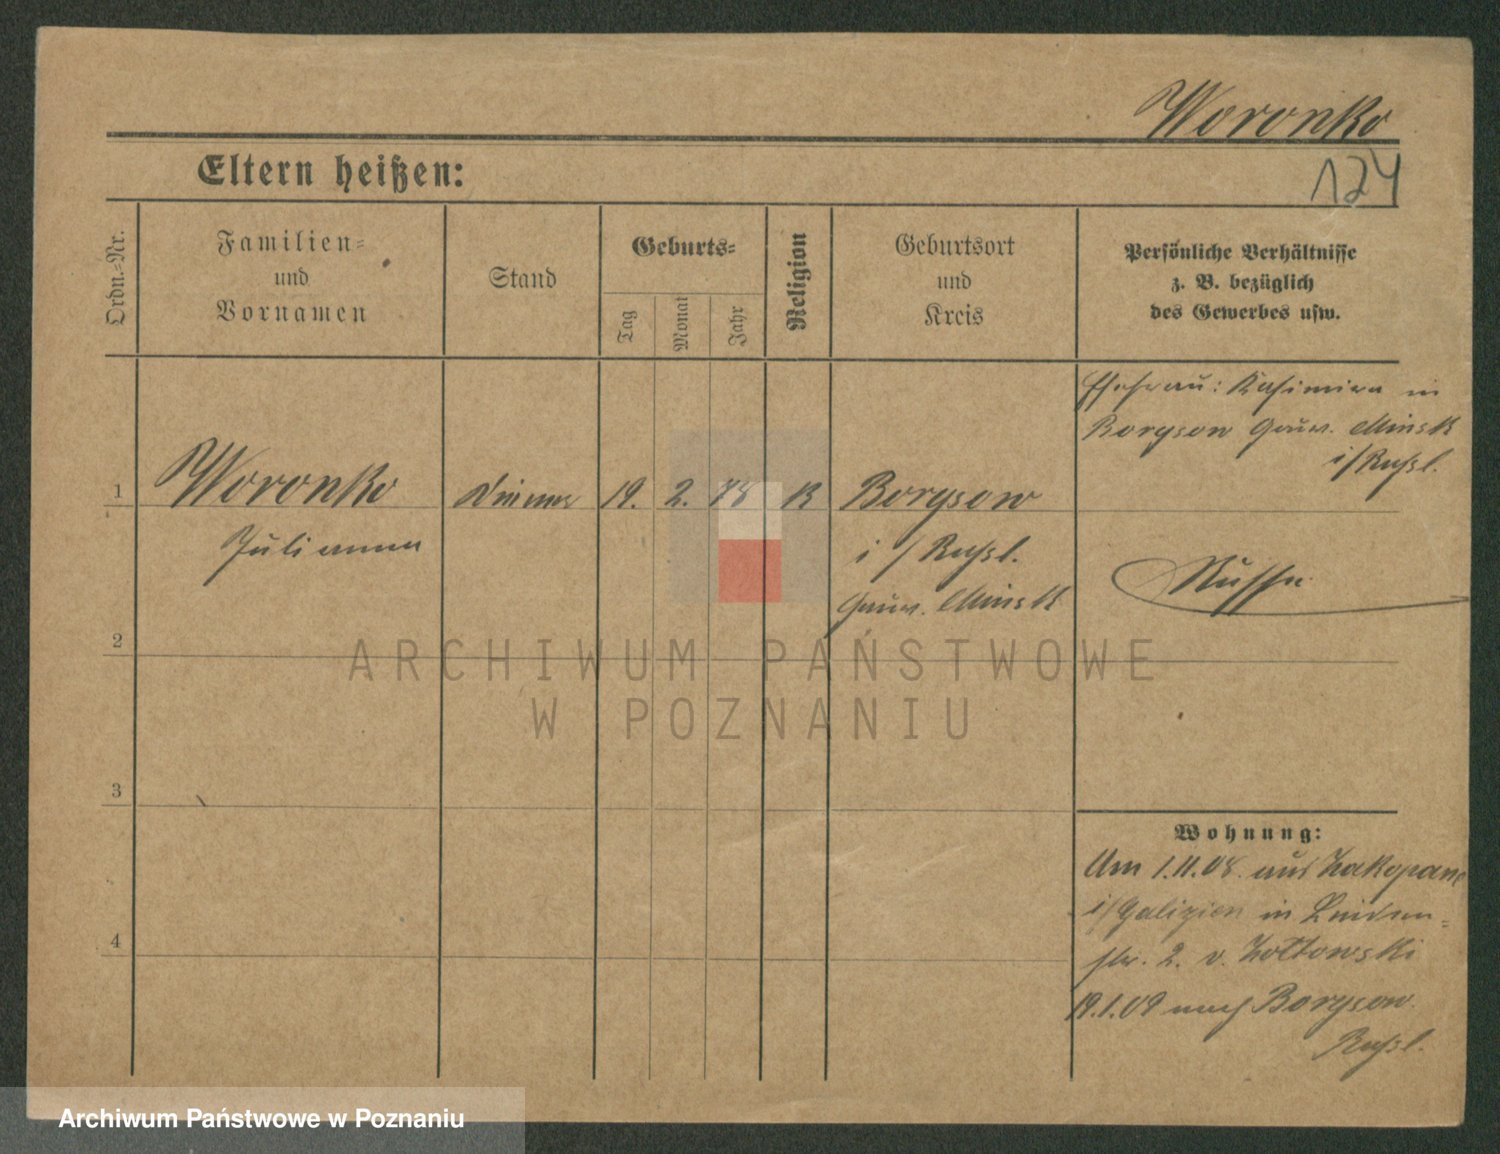 Woronko
124
Eltern heißen:
Ordn.-Nr.
Familien-
und
Vornamen
Stand
Geburts-
Tag
Monat
Jahr
Religion
Geburtsort
und
Kreis
Persönliche Verhältnisse
z. B. bezüglich
des Gewerbes usw.
Ehefrau: Kasimira in
Borysow Gouv. Minsk
i/Russl.
1
Woronko
Diener
19. 2.
K
Borysow
Julian
i/Russl.
Gouv. Minsk
Russe
2
ARCHIWUM PAŃSTWOWE
W POZNANIU
3
Wohnung:
Am 1.11.08. aus Zakopane
i/Galizien in Linden-
str. 2. v. Zoltowski
19.1.09 nach Borysow
Russl.
4
Archiwum Państwowe w Poznaniu